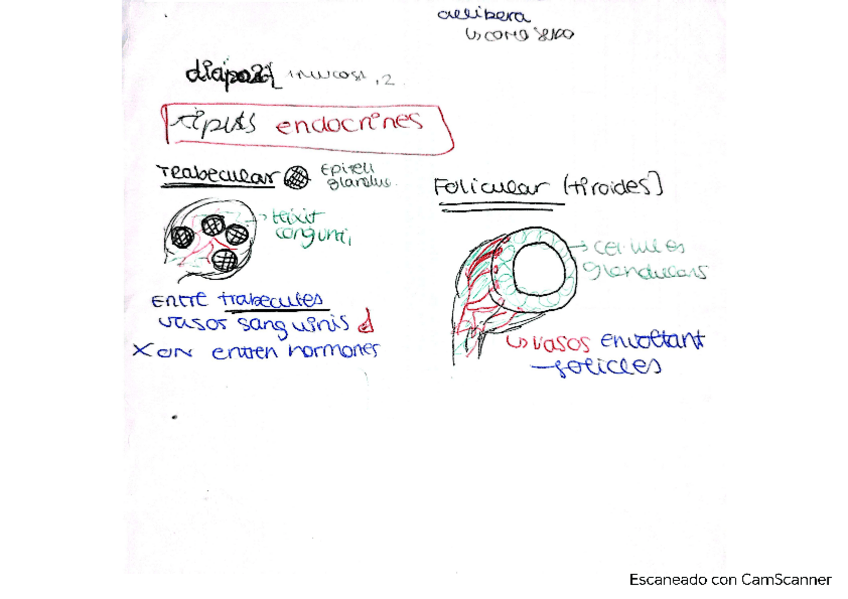 allibera
↳ com a seroo
tipus endocrines
Trabecular
Epiteli
glandular
teixit
conjunti,
Entre trabecules
vasos sanguinis
X on entren hormones
Folicular (tiroides)
→ cel·lules
glandulars
↳ vasos envoltant
folicles
Escaneado con CamScanner